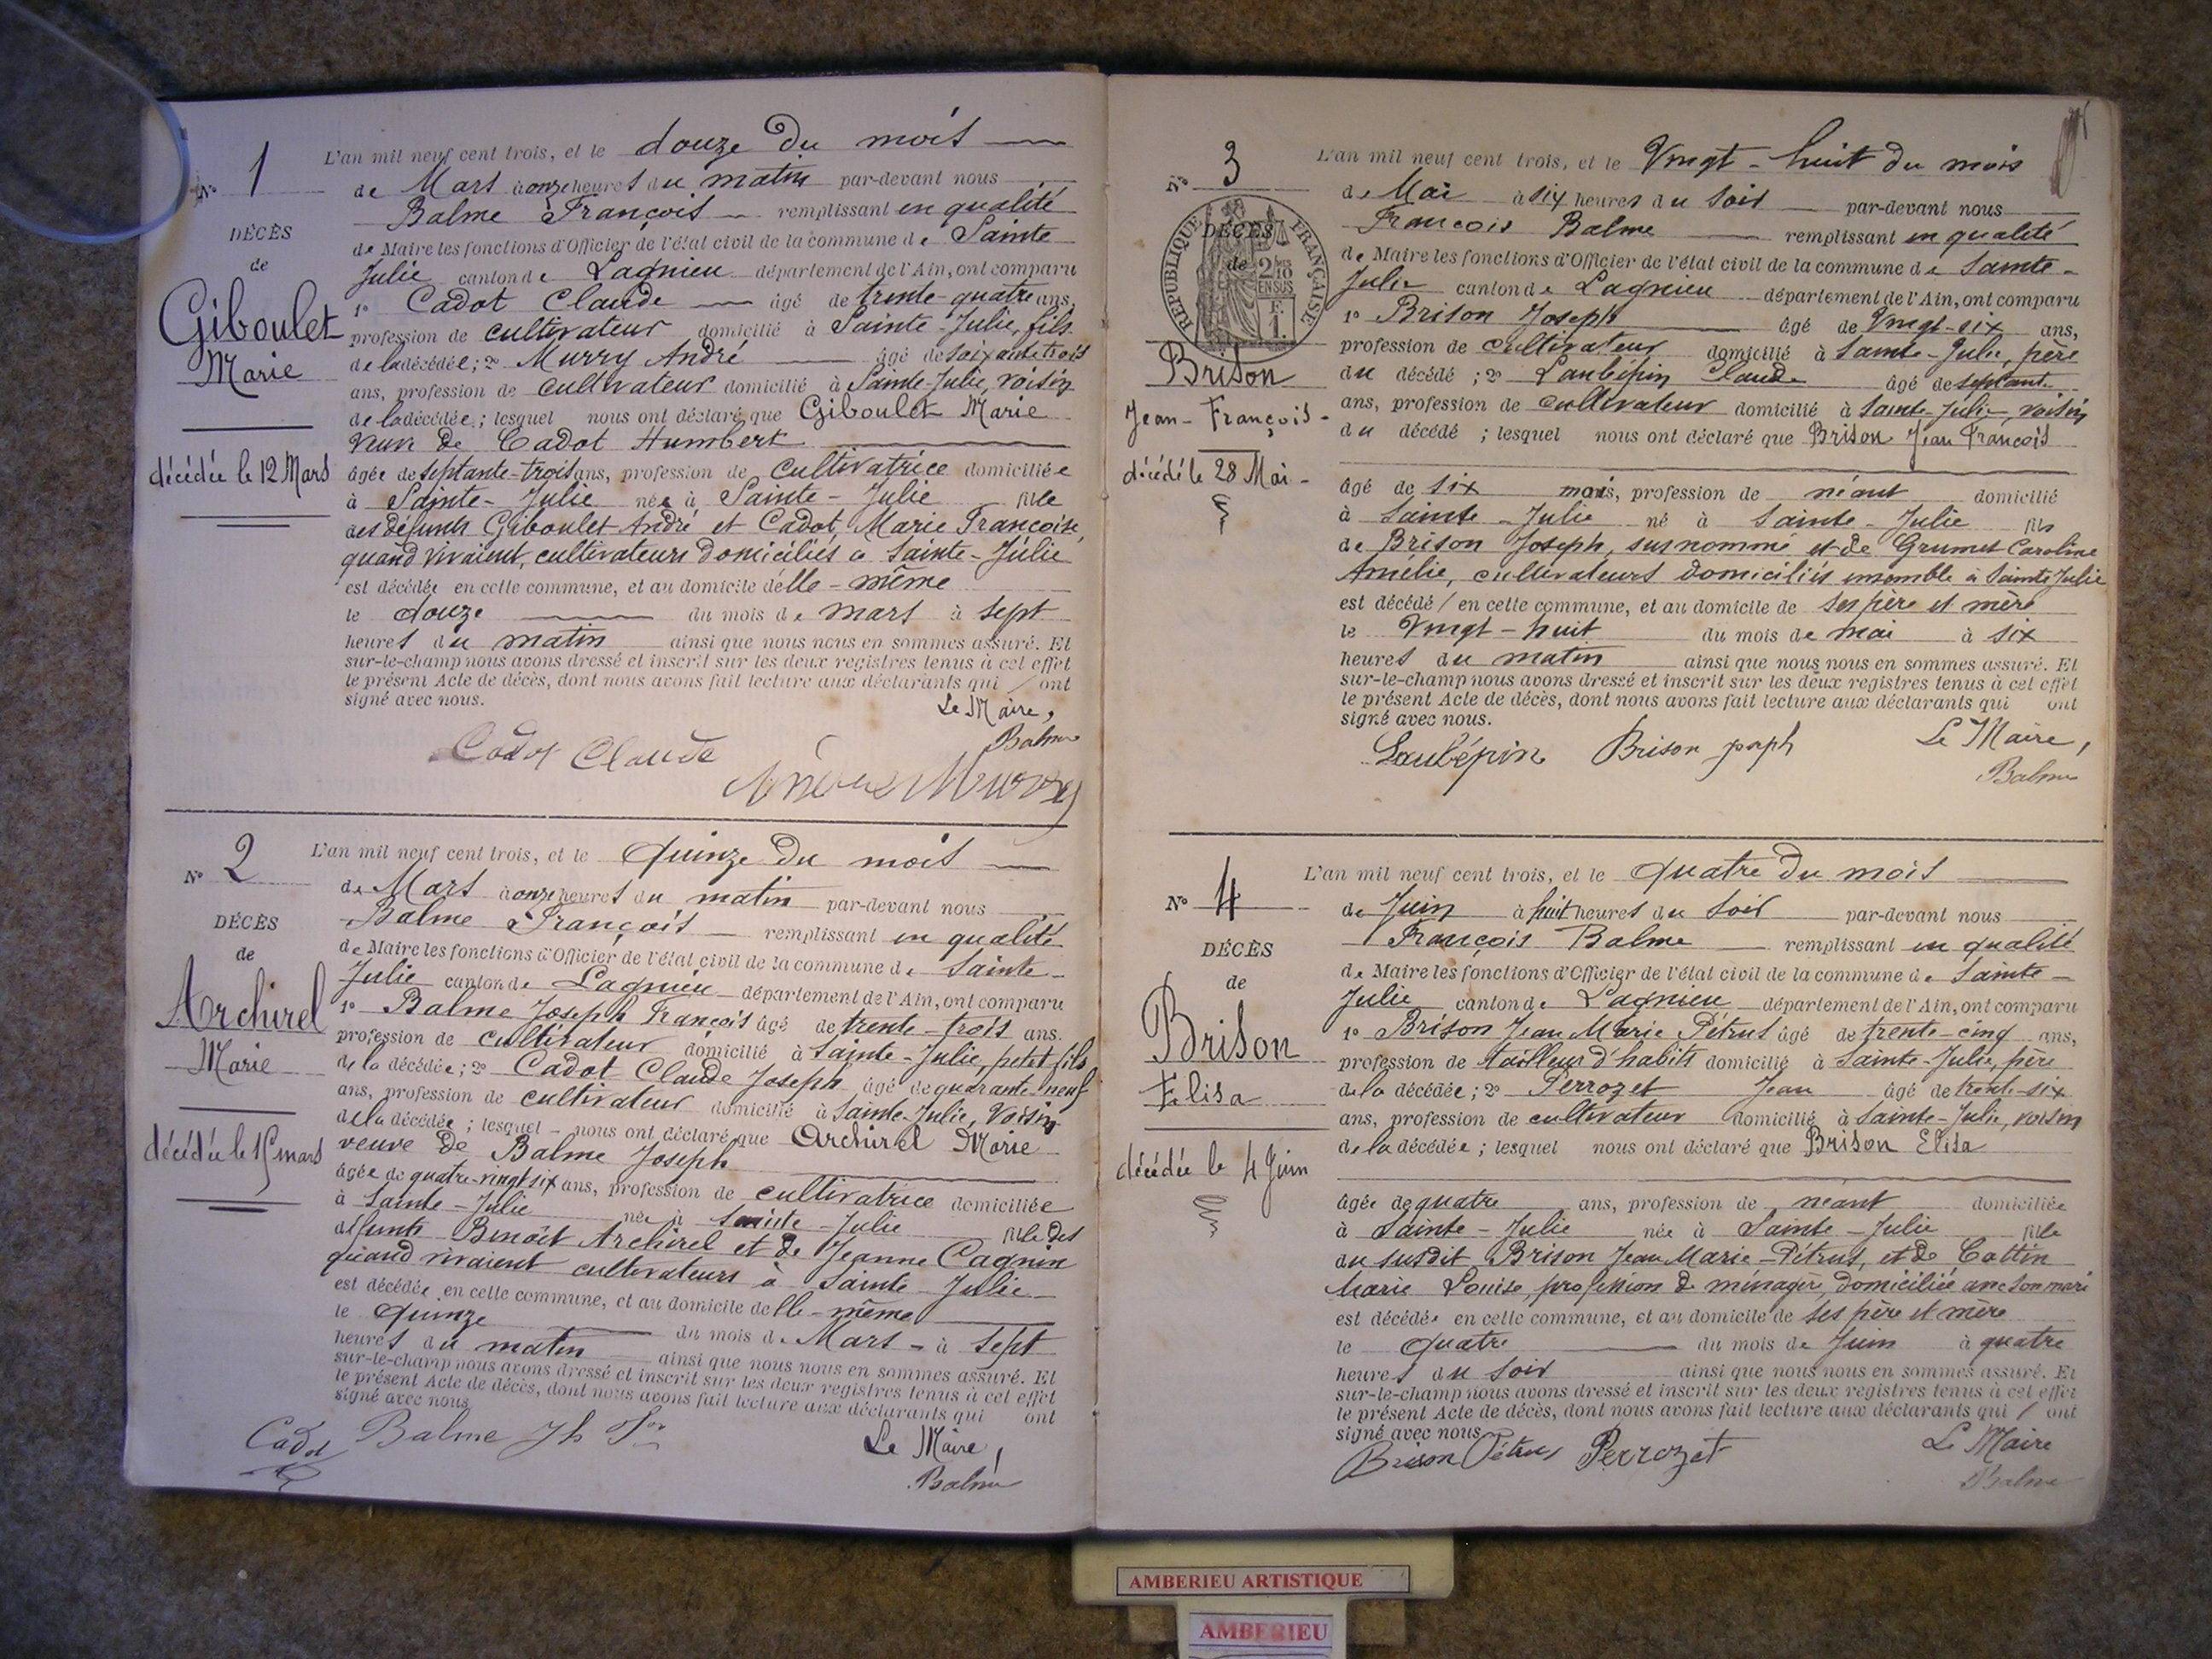 L'an mil neuf cent trois, et le douze du mois
N° 1 de Mars à onze heures du matin par-devant nous
Balme François remplissant en qualité
DÉCÈS de Maire les fonctions d'Officier de l'état civil de la commune de Sainte
de Julie canton de Lagnieu département de l'Ain, ont comparu
1° Cadot Claude âgé de trente-quatre ans,
Giboulet profession de cultivateur domicilié à Sainte-Julie, fils
Marie de la décédée; 2° Murry André âgé de soixante trois
ans, profession de cultivateur domicilié à Sainte-Julie, voisin
de la décédée; lesquel nous ont déclaré que Giboulet Marie
veuve de Cadot Humbert
décédée le 12 Mars âgée de septante-trois ans, profession de cultivatrice domiciliée
à Sainte-Julie née à Sainte-Julie fille
des défunts Giboulet André et Cadot Marie Françoise,
quand vivaient, cultivateurs domiciliés à Sainte-Julie
est décédée en cette commune, et au domicile d'elle-même
le douze du mois de mars à sept
heures du matin ainsi que nous nous en sommes assuré. Et
sur-le-champ nous avons dressé et inscrit sur les deux registres tenus à cet effet
le présent Acte de décès, dont nous avons fait lecture aux déclarants qui ont
signé avec nous.
Le Maire,
Balme
Cadot Claude
André Murry
L'an mil neuf cent trois, et le quinze du mois
N° 2 de Mars à onze heures du matin par-devant nous
Balme François remplissant en qualité
DÉCÈS de Maire les fonctions d'Officier de l'état civil de la commune de Sainte
de Julie canton de Lagnieu département de l'Ain, ont comparu
1° Balme Joseph François âgé de trente-trois ans.
Archirel profession de cultivateur domicilié à Sainte-Julie, petit fils
Marie de la décédée; 2° Cadot Claude Joseph âgé de quarante-neuf
ans, profession de cultivateur domicilié à Sainte-Julie, voisin
de la décédée; lesquel nous ont déclaré que Archirel Marie
décédée le 15 mars veuve de Balme Joseph
âgée de quatre-vingt six ans, profession de cultivatrice domiciliée
à Sainte-Julie née à Sainte-Julie fille des
défunts Benoît Archirel et de Jeanne Cagnin
quand vivaient cultivateurs à Sainte Julie
est décédée en cette commune, et au domicile d'elle-même
le quinze du mois de Mars à sept
heures du matin ainsi que nous nous en sommes assuré. Et
sur-le-champ nous avons dressé et inscrit sur les deux registres tenus à cet effet
le présent Acte de décès, dont nous avons fait lecture aux déclarants qui ont
signé avec nous.
Cadot Balme Jh Fois
Le Maire,
Balme
L'an mil neuf cent trois, et le Vingt-huit du mois
N° 3 de Mai à six heures du soir par-devant nous
François Balme remplissant en qualité
DÉCÈS de Maire les fonctions d'Officier de l'état civil de la commune de Sainte-
de Julie canton de Lagnieu département de l'Ain, ont comparu
RÉPUBLIQUE FRANÇAISE
2/10 EN SUS
F. 1.
1° Brison Joseph âgé de Vingt-six ans,
profession de cultivateur domicilié à Sainte-Julie, père
Brison du décédé; 2° Laubépin Claude âgé de septante
Jean-François ans, profession de cultivateur domicilié à Sainte-Julie, voisin
du décédé; lesquel nous ont déclaré que Brison Jean François
décédé le 28 Mai
âgé de six mois, profession de néant domicilié
à Sainte-Julie né à Sainte-Julie fils
de Brison Joseph, susnommé et de Grumet Caroline
Amélie, cultivateurs domiciliés ensemble à Sainte Julie
est décédé en cette commune, et au domicile de ses père et mère
le Vingt-huit du mois de mai à six
heures du matin ainsi que nous nous en sommes assuré. Et
sur-le-champ nous avons dressé et inscrit sur les deux registres tenus à cet effet
le présent Acte de décès, dont nous avons fait lecture aux déclarants qui ont
signé avec nous.
Laubépin Brison joseph Le Maire,
Balme
L'an mil neuf cent trois, et le quatre du mois
N° 4 de Juin à huit heures du soir par-devant nous
François Balme remplissant en qualité
DÉCÈS de Maire les fonctions d'Officier de l'état civil de la commune de Sainte-
de Julie canton de Lagnieu département de l'Ain, ont comparu
1° Brison Jean Marie Pétrus âgé de trente-cinq ans,
Brison profession de tailleur d'habits domicilié à Sainte-Julie, père
Elisa de la décédée; 2° Perrozet Jean âgé de trente-six
ans, profession de cultivateur domicilié à Sainte-Julie, voisin
de la décédée; lesquel nous ont déclaré que Brison Elisa
décédée le 4 Juin
âgée de quatre ans, profession de néant domiciliée
à Sainte-Julie née à Sainte-Julie fille
du susdit Brison Jean Marie-Pétrus, et de Cottin
Marie Louise profession de ménagère, domiciliée avec son mari
est décédée en cette commune, et au domicile de ses père et mère
le quatre du mois de Juin à quatre
heures du soir ainsi que nous nous en sommes assuré. Et
sur-le-champ nous avons dressé et inscrit sur les deux registres tenus à cet effet
le présent Acte de décès, dont nous avons fait lecture aux déclarants qui ont
signé avec nous.
Brison Pétrus Perrozet Le Maire
Balme
AMBERIEU ARTISTIQUE
AMBERIEU